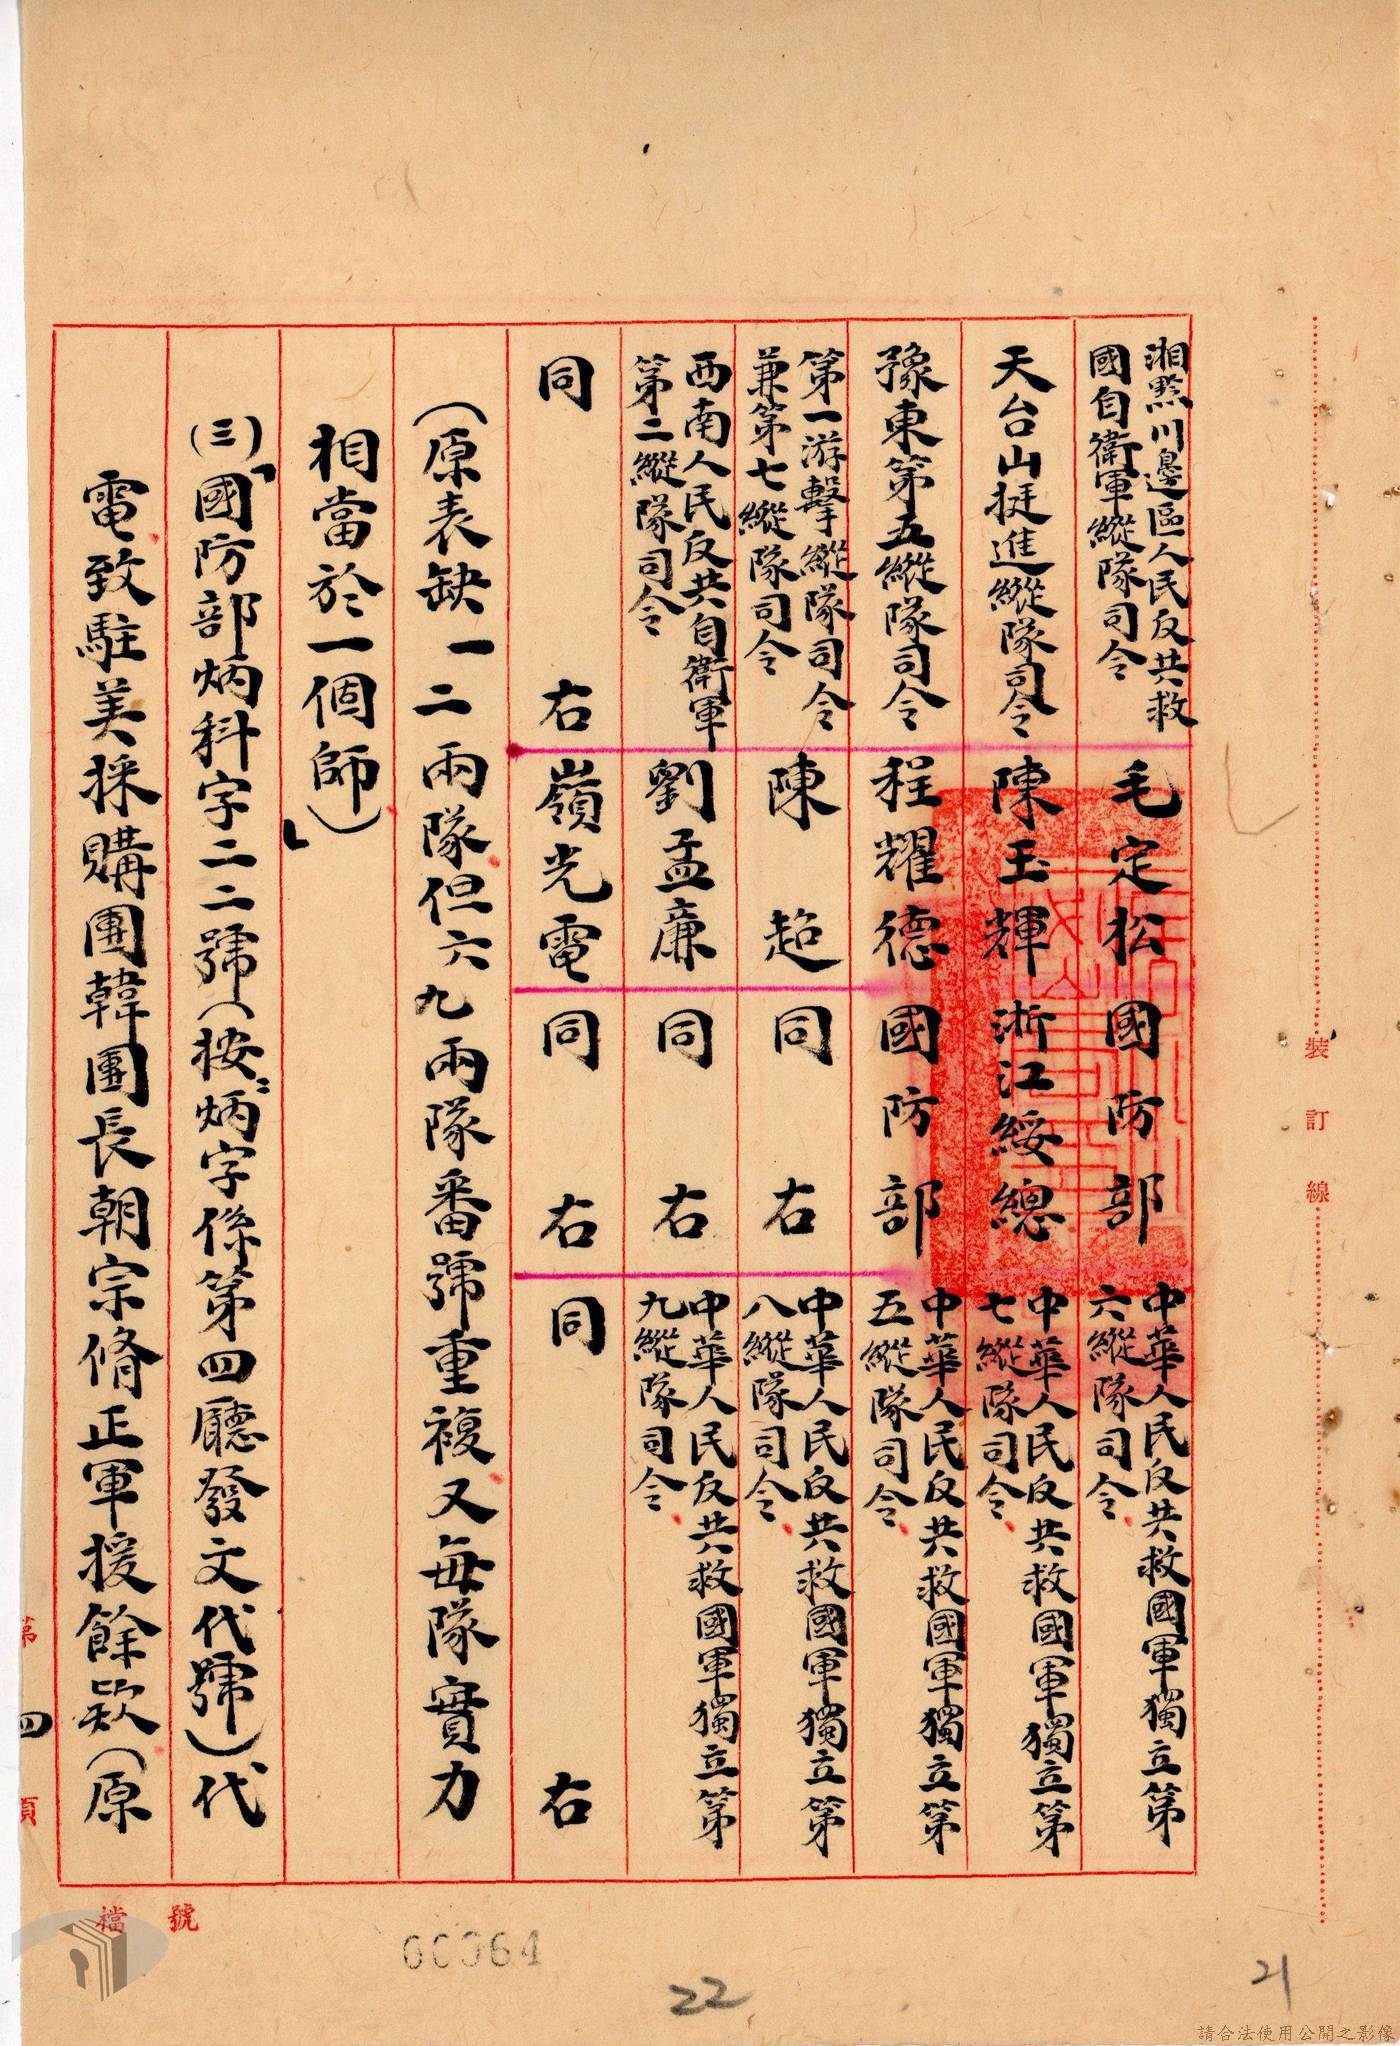 裝訂線
湘黔川邊區人民反共救
國自衛軍縱隊司令
毛定松
國防部
中華人民反共救國軍獨立第
六縱隊司令
天台山挺進縱隊司令
陳玉輝
浙江綏總
中華人民反共救國軍獨立第
七縱隊司令
豫東第五縱隊司令
程耀德
國防部
中華人民反共救國軍獨立第
五縱隊司令
第一游擊縱隊司令
兼第七縱隊司令
陳超
同右
中華人民反共救國軍獨立第
八縱隊司令
西南人民反共自衛軍
第二縱隊司令
劉孟廉
同右
中華人民反共救國軍獨立第
九縱隊司令
同右
嶺光電
同右
同右
(原表缺一二兩隊但六九兩隊番號重複又每隊實力
相當於一個師)」
(三)「國防部炳科字二二號(按"炳字係第四廳發文代號)代
電致駐美採購團韓團長朝宗脩正軍援餘款(原
第四頁
檔號
00364
22
21
請合法使用公開之影像